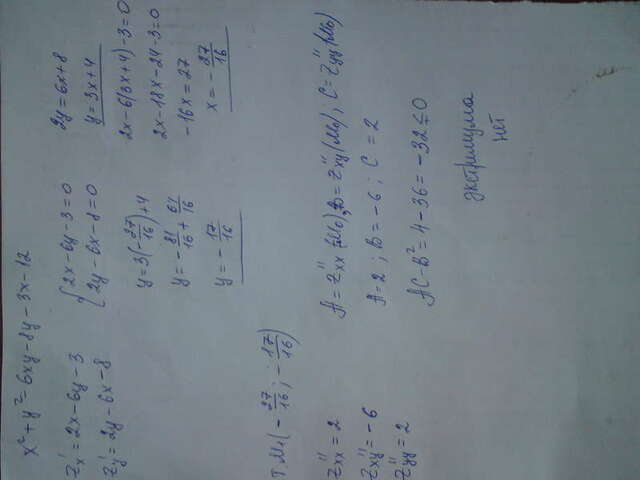 x² + y² = 6xy - 8y - 3x - 12
z'x = 2x - 6y - 3
z'y = 2y - 6x - 8
{ 2x - 6y - 3 = 0
2y - 6x - 8 = 0
2y = 6x + 8
y = 3x + 4
2x - 6(3x + 4) - 3 = 0
2x - 18x - 24 - 3 = 0
-16x = 27
x = -27/16
y = 3(-27/16) + 4
y = -81/16 + 64/16
y = -17/16
т. M₀(-27/16; -17/16)
z''xx = 2
z''xy = -6
z''yy = 2
A = z''xx(M₀); B = z''xy(M₀); C = z''yy(M₀)
A = 2; B = -6; C = 2
AC - B² = 4 - 36 = -32 ≤ 0
экстримума
нет